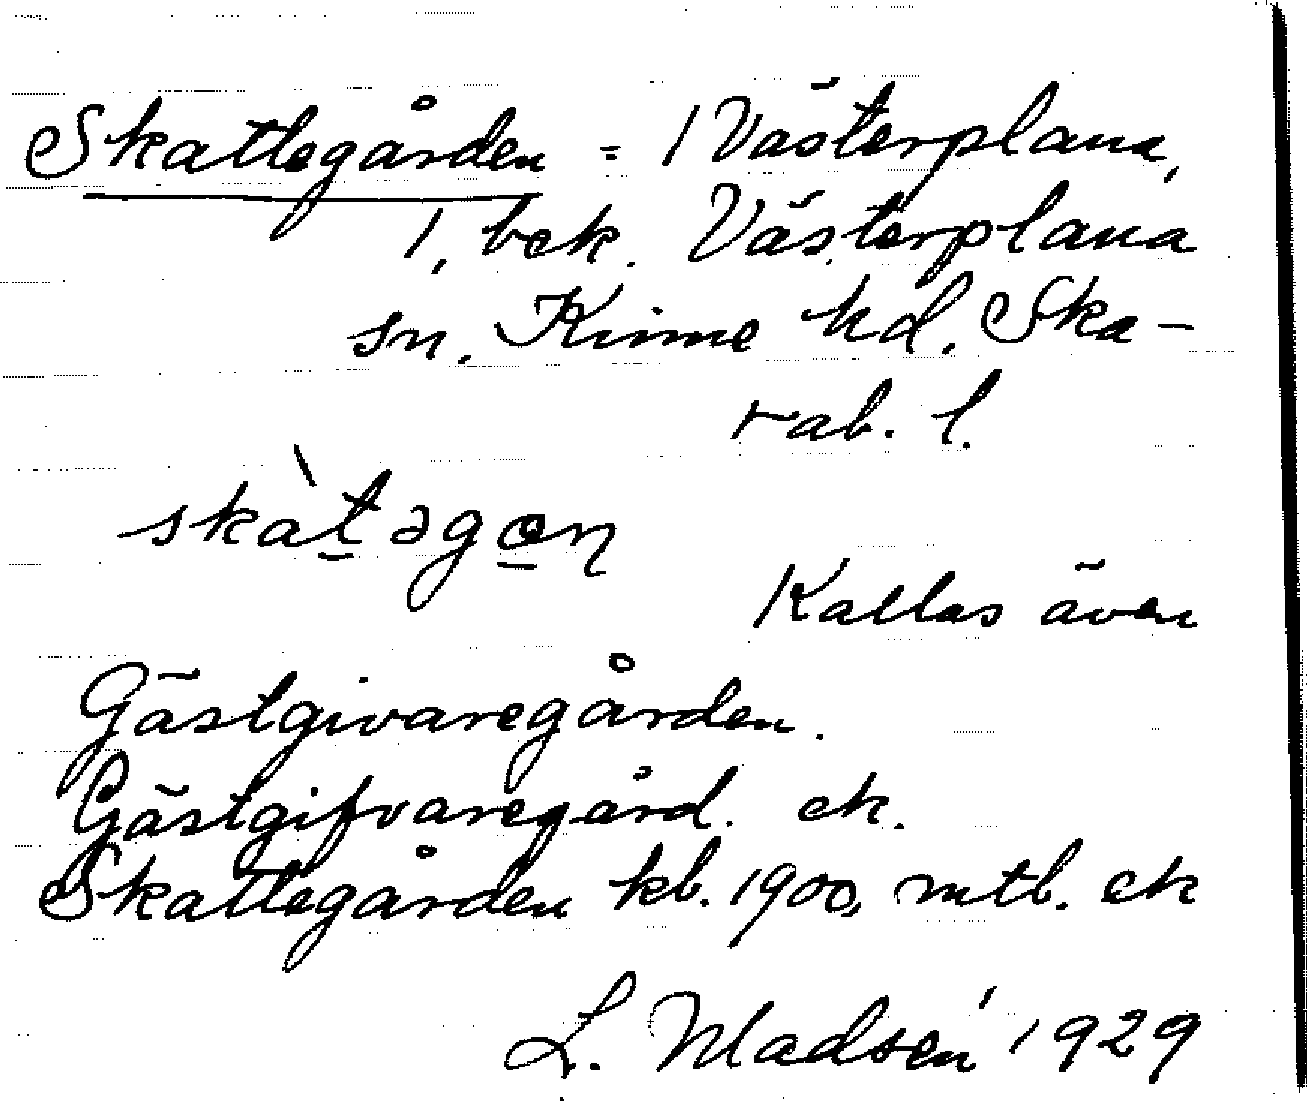 Skattegården = 1 Västerplana,
1, bek. Västerplana
sn. Kinne hd. Ska-
rab. l.
skàt̲əgo̲ɳ
Kallas även
Gästgivaregården.
Gästgifvaregård. ek.
Skattegården kb. 1900, mtl. ek
L. Madsén 1929